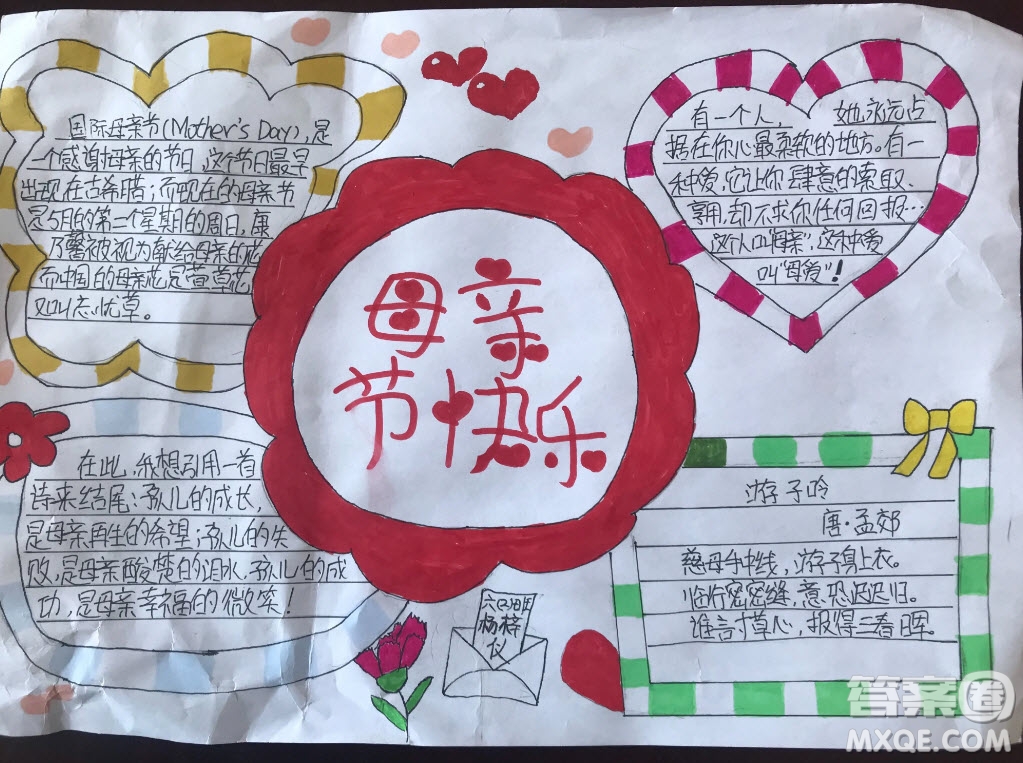 国际母亲节(Mother's Day),是
一个感谢母亲的节日,这个节日最早
出现在古希腊;而现在的母亲节
是5月的第二个星期的周日,康
乃馨被视为献给母亲的花
而中国的母亲花是萱草花,
又叫忘忧草。
有一个人, 她永远占
据在你心最柔软的地方。有一
种爱,它让你肆意的索取、
享用,却不求你任何回报…
这个人叫"母亲",这个种爱
叫"母爱"!
母亲
节快乐
在此,我想引用一首
诗来结尾:孩儿的成长,
是母亲再生的希望;孩儿的失
败,是母亲酸楚的泪水,孩儿的成
功,是母亲幸福的微笑!
游子吟
唐·孟郊
慈母手中线,游子身上衣。
临行密密缝,意恐迟迟归。
谁言寸草心,报得三春晖。
杨梓
答案圈
MXQE.COM